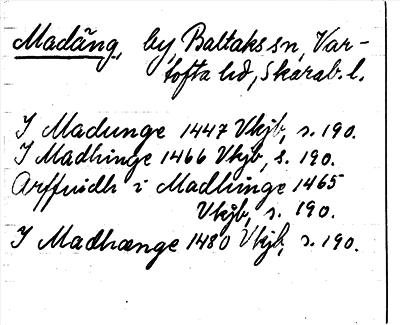 Madäng, by Baltaks sn, Var-
tofta hd, Skarab. l.
I Madunge 1447 Vkjb, s. 190.
I Madhinge 1466 Vkjb, s. 190.
Arffuidh i Madhinge 1465
Vkjb, s. 190.
I Madhænge 1480 Vkjb, s. 190.